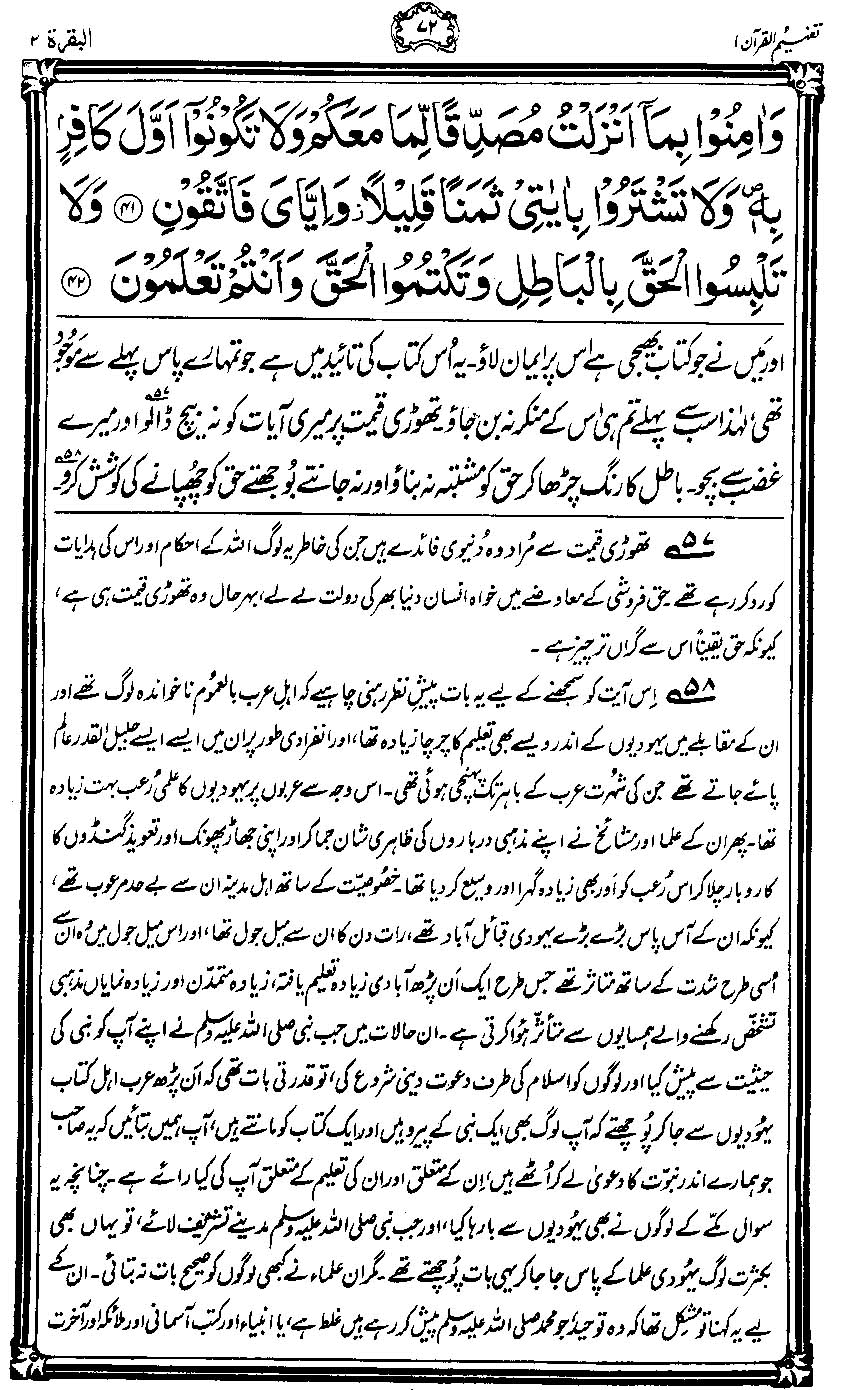 تفہیم القرآن ۱
۷۲
البقرة ۲
وَاٰمِنُوْا بِمَاۤ اَنْزَلْتُ مُصَدِّقًا لِّمَا مَعَكُمْ وَلَا تَكُوْنُوْۤا اَوَّلَ كَافِرٍۭ
بِهٖ۪ وَلَا تَشْتَرُوْا بِاٰيٰتِيْ ثَمَنًا قَلِيْلًا٘ وَاِيَّايَ فَاتَّقُوْنِ ﴿۴۱﴾ وَلَا
تَلْبِسُوا الْحَقَّ بِالْبَاطِلِ وَتَكْتُمُوا الْحَقَّ وَاَنْتُمْ تَعْلَمُوْنَ ﴿۴۲﴾
اور مَیں نے جو کتاب بھیجی ہے اس پر ایمان لاؤ۔ یہ اُس کتاب کی تائید میں ہے جو تمہارے پاس پہلے سے موجُود
تھی، لہٰذا سب سے پہلے تم ہی اس کے منکر نہ بن جاؤ۔ تھوڑی قیمت پر میری آیات کو نہ بیچ ڈالو۵۷ اور میرے
غضب سے بچو۔ باطل کا رنگ چڑھا کر حق کو مشتبہ نہ بناؤ اور نہ جانتے بُوجھتے حق کو چھُپانے کی کوشش کرو۵۸۔
۵۷ تھوڑی قیمت سے مُراد وہ دُنیوی فائدے ہیں جن کی خاطر یہ لوگ اللہ کے احکام اور اس کی ہدایات
کو رد کر رہے تھے۔ حق فروشی کے معاوضے میں خواہ انسان دنیا بھر کی دولت لے لے، بہرحال وہ تھوڑی قیمت ہی ہے،
کیونکہ حق یقیناً اس سے گراں تر چیز ہے۔
۵۸ اِس آیت کو سمجھنے کے لیے یہ بات پیشِ نظر رہنی چاہیے کہ اہلِ عرب بالعمُوم ناخواندہ لوگ تھے اور
ان کے مقابلے میں یہودیوں کے اندر ویسے بھی تعلیم کا چرچا زیادہ تھا، اور انفرادی طور پر ان میں ایسے ایسے جلیل القدر عالم
پائے جاتے تھے جن کی شہرت عرب کے باہر تک پہنچی ہوئی تھی۔ اس وجہ سے عربوں پر یہودیوں کا علمی رُعب بہت زیادہ
تھا۔ پھر ان کے علما اور مشائخ نے اپنے مذہبی درباروں کی ظاہری شان جما کر اور اپنی جھاڑ پھونک اور تعویذ گنڈوں کا
کاروبار چلا کر اس رُعب کو اَور بھی زیادہ گہرا اور وسیع کر دیا تھا۔ خصُوصیّت کے ساتھ اہل مدینہ ان سے بے حد مرعوب تھے،
کیونکہ ان کے آس پاس بڑے بڑے یہودی قبائل آباد تھے، رات دن کا ان سے میل جول تھا، اور اس میل جول میں وہ اُن سے
اُسی طرح شدت کے ساتھ متاثر تھے جس طرح ایک اَن پڑھ آبادی زیادہ تعلیم یافتہ، زیادہ متمدّن اور زیادہ نمایاں مذہبی
تشخّص رکھنے والے ہمسایوں سے متأثر ہُوا کرتی ہے۔ ان حالات میں جب نبی صلی اللہ علیہ وسلم نے اپنے آپ کو نبی کی
حیثیت سے پیش کیا اور لوگوں کو اسلام کی طرف دعوت دینی شروع کی، تو قدرتی بات تھی کہ اَن پڑھ عرب اہل کتاب
یہُودیوں سے جا کر پُوچھتے کہ آپ لوگ بھی ایک نبی کے پیرو ہیں اور ایک کتاب کو مانتے ہیں، آپ ہمیں بتائیں کہ یہ صاحب
جو ہمارے اندر نبوّت کا دعویٰ لے کر اُٹھے ہیں، اِن کے متعلق اور ان کی تعلیم کے متعلق آپ کی کیا رائے ہے۔ چنانچہ یہ
سوال مکّے کے لوگوں نے بھی یہُودیوں سے بارہا کیا، اور جب نبی صلی اللہ علیہ وسلم مدینے تشریف لائے، تو یہاں بھی
بکثرت لوگ یہُودی علما کے پاس جا جا کر یہی بات پُوچھتے تھے۔ مگر ان علماء نے کبھی لوگوں کو صحیح بات نہ بتائی۔ ان کے
لیے یہ کہنا تو مشکل تھا کہ وہ توحید، جو محمد صلی اللہ علیہ وسلم پیش کر رہے ہیں غلط ہے، یا انبیاء اور کتب آسمانی اور ملائکہ اور آخرت